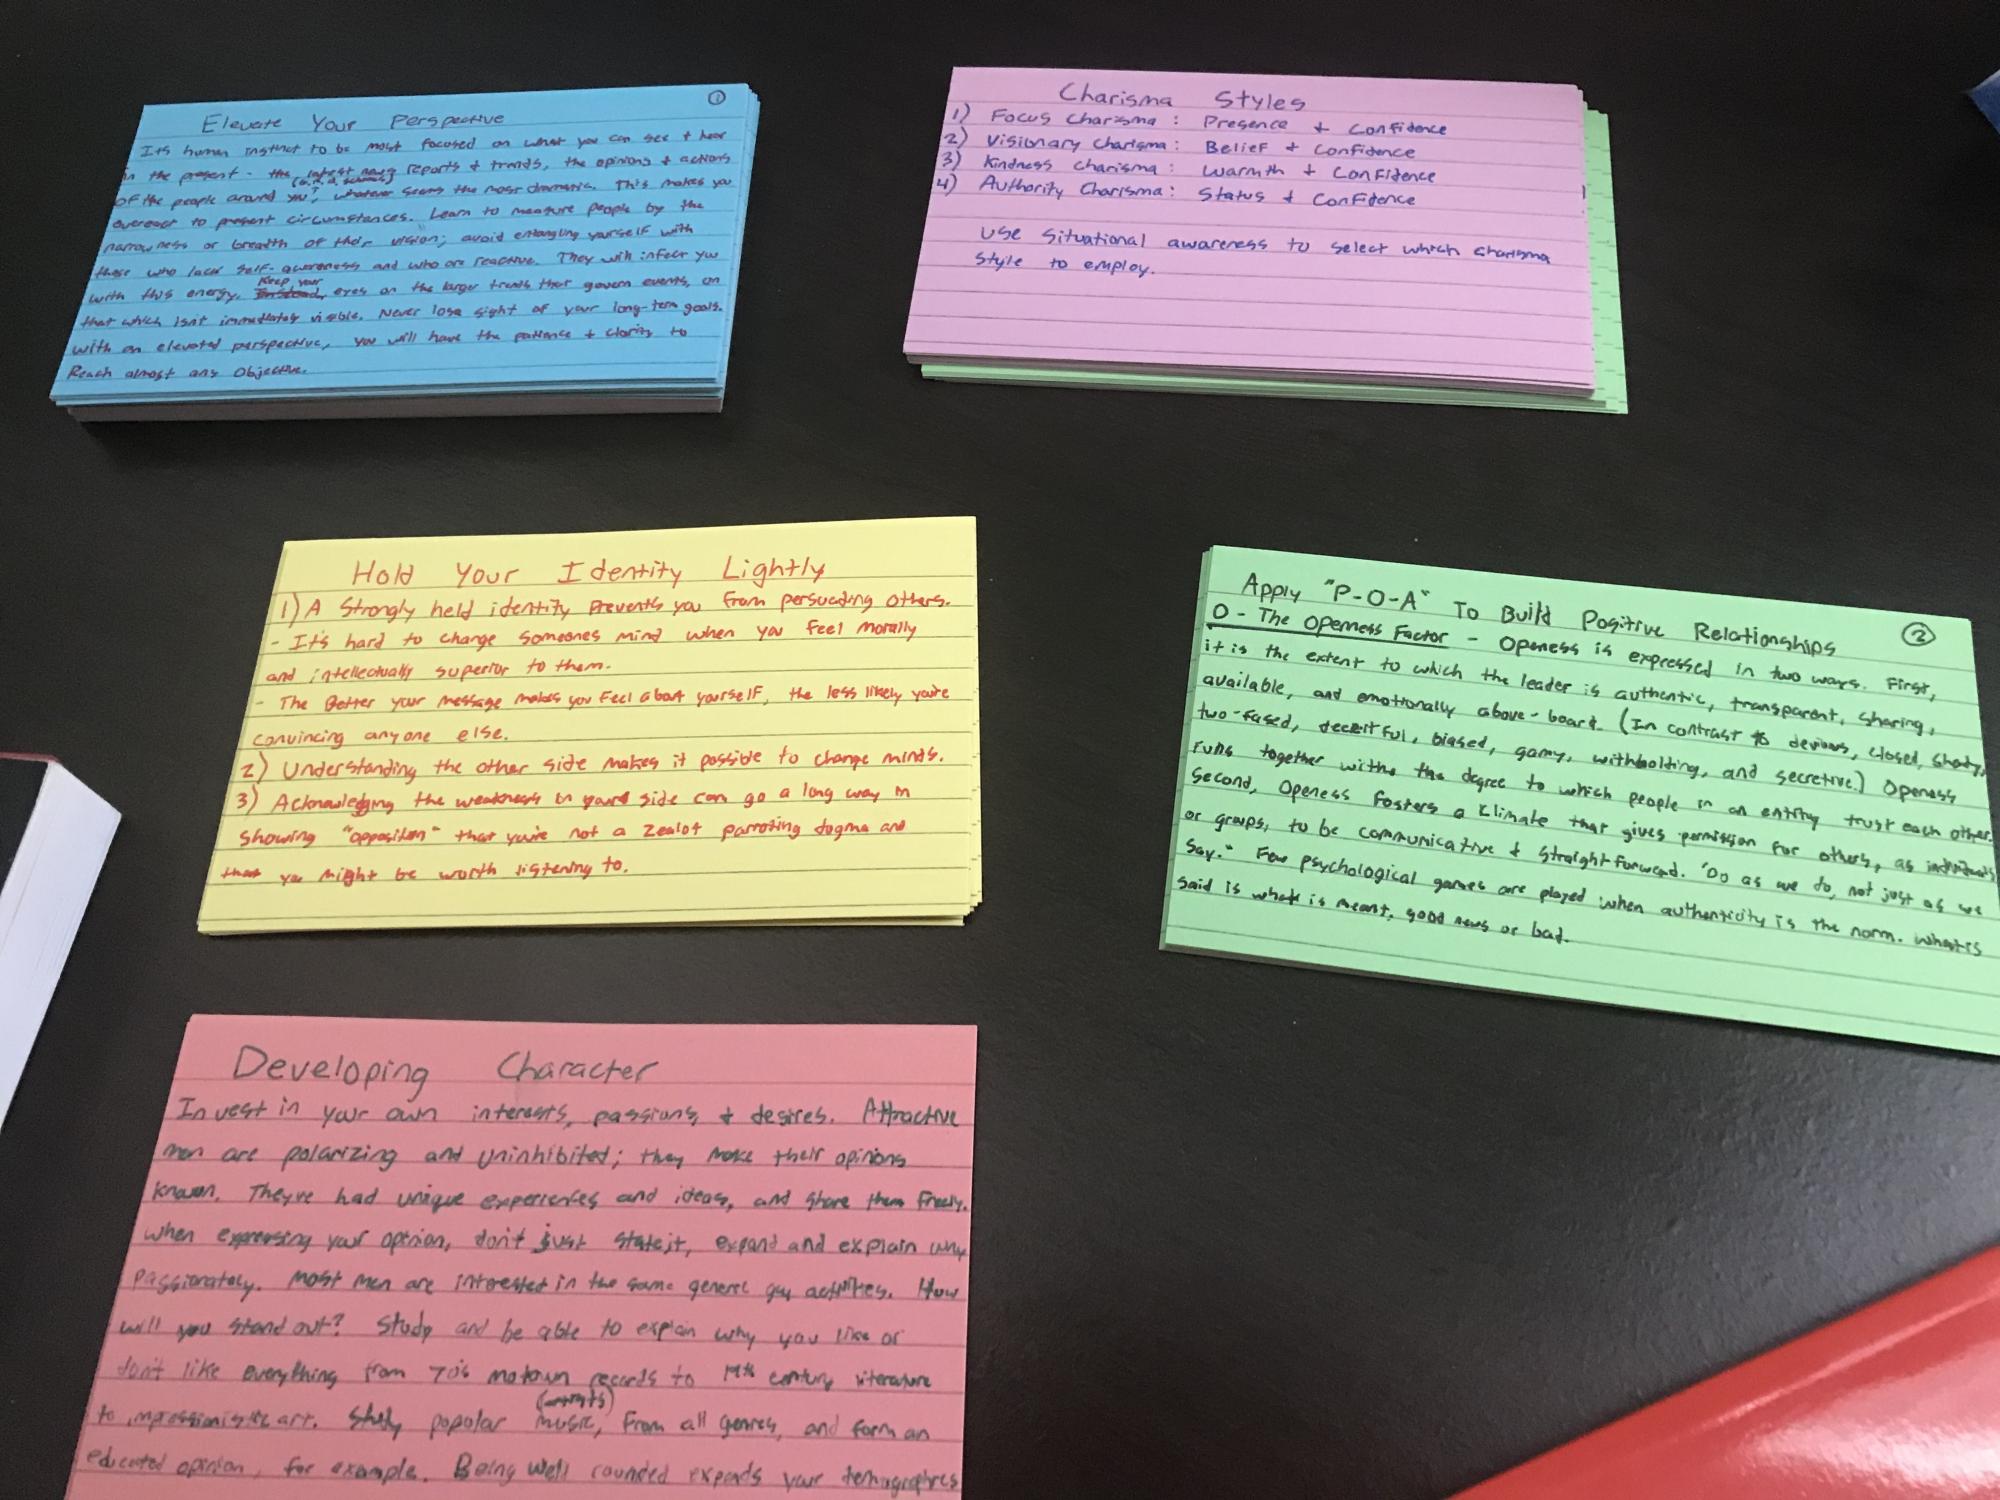 Elevate Your Perspective
1
Its human instinct to be most focused on what you can see + hear
in the present - the latest news reports + trends, the opinions + actions
of the people around you, whatever seems the most dramatic. This makes you
overreact to present circumstances. Learn to measure people by the
narrowness or breadth of their vision; avoid entangling yourself with
those who lack self-awareness and who are reactive. They will infect you
with this energy. Keep your eyes on the larger trends that govern events, on
that which isn't immediately visible. Never lose sight of your long-term goals.
With an elevated perspective, you will have the patience + clarity to
Reach almost any Objective.
Charisma Styles
1) Focus Charisma: Presence + Confidence
2) Visionary Charisma: Belief + Confidence
3) Kindness Charisma: Warmth + Confidence
4) Authority Charisma: Status + Confidence
Use Situational awareness to select which charisma
style to employ.
Hold Your Identity Lightly
1) A Strongly held identity prevents you from persuading others.
- It's hard to change someones mind when you feel morally
and intellectually superior to them.
- The Better your message makes you feel about yourself, the less likely you're
convincing anyone else.
2) Understanding the other side makes it possible to change minds.
3) Acknowledging the weakness in your side can go a long way in
showing "opposition" that you're not a zealot parroting dogma and
that you might be worth listening to.
Apply "P-O-A" To Build Positive Relationships
2
O - The Openness Factor - Openess is expressed in two ways. First,
it is the extent to which the leader is authentic, transparent, sharing,
available, and emotionally above-board. (In contrast to devious, closed, shady,
two-fased, deceitful, biased, gamy, withholding, and secretive.) Openess
runs together with the degree to which people in an entity trust each other.
Second, Openess fosters a climate that gives permission for others, as individuals
or groups, to be communicative + straightforward. "Do as we do, not just as we
say." Few psychological games are played when authenticity is the norm. What is
said is what is meant, good news or bad.
Developing Character
Invest in your own interests, passions, + desires. Attractive
men are polarizing and uninhibited; they make their opinions
known. They've had unique experiences and ideas, and share them freely.
When expressing your opinion, don't just state it, expand and explain why
passionately. Most men are interested in the same general guy activities. How
will you stand out? Study and be able to explain why you like or
don't like everything from 70's motown records to 19th century literature
to impressionistic art. Study popular music, from all genres, and form an
educated opinion, for example. Being well rounded expands your demographics